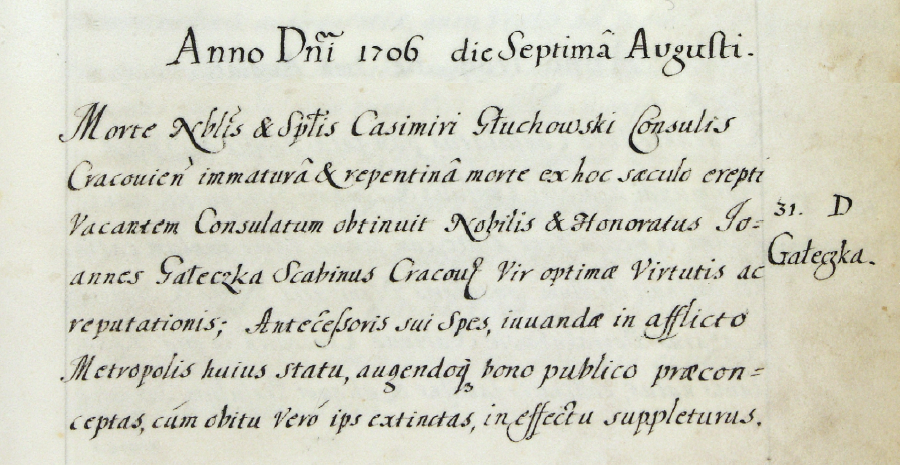 Anno Dñi 1706 die Septimâ Augusti.
Morte Nblis & Spllis Casimiri Głuchowski Consulis
Cracouien̄ immaturâ & repentinâ morte ex hoc sæculo erepti
Vacantem Consulatum obtinuit Nobilis & Honoratus Jo=
annes Gałeczka Scabinus Cracouȩ Vir optimæ Virtutis ac
reputationis; Antecessoris sui Spes, iuuandæ in afflicto
Metropolis huius statu, augendoq̃ bono publico præcon=
ceptas, cúm obitu Veró ips extinctas, in effectu suppleturus.
31. D
Gałeczka.